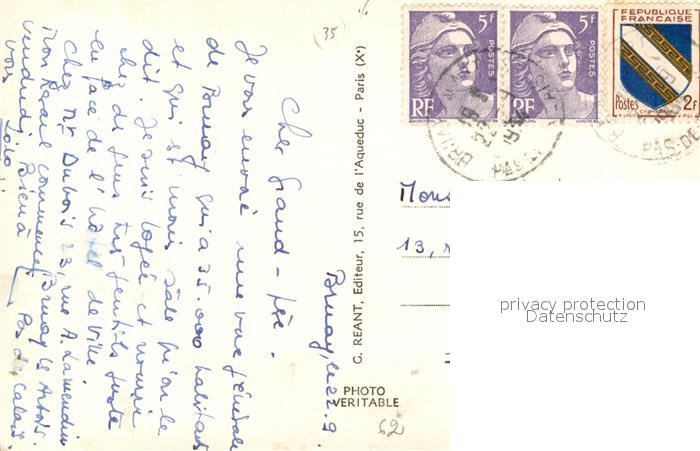 35
Bruay, le 22.9.
Cher grand-père.
Je vous envoie une vue générale
de Bruay qui a 35.000 habitants
et qui est moins sale qu'on le
dit. Je suis logée et nourrie
chez de gens très gentils juste
en face de l'hôtel de ville
Chez Mr Dubois 23, rue A. Lamendin
Bruay en Artois.
Pas de Calais.
Mon stage commence
vendredi. Bien à
vous
G. REANT, Editeur, 15, rue de l'Aqueduc - Paris (Xe)
PHOTO
VERITABLE
62
5F
POSTES
RF
5F
POSTES
RF
REPUBLIQUE
FRANÇAISE
Postes 2F
CHAMPAGNE
BRUAY
PAS-DE
13,
privacy protection
Datenschutz